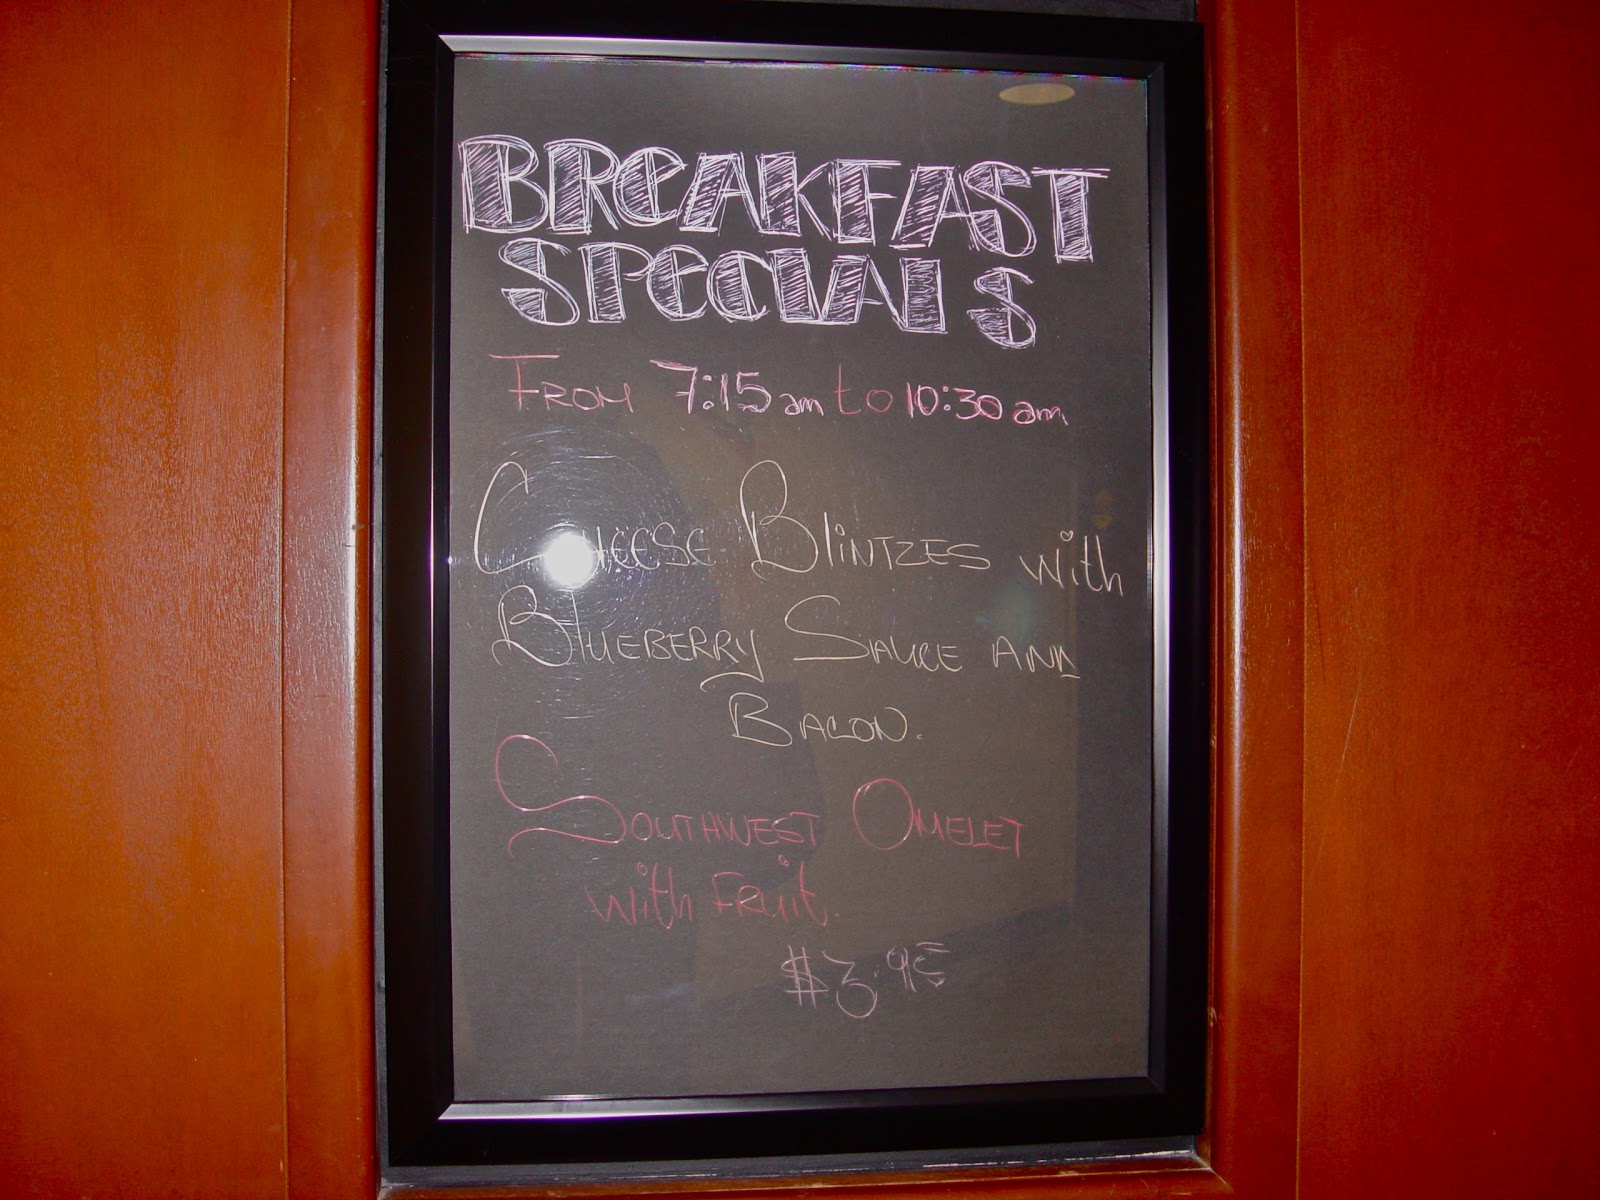 BREAKFAST
SPECIALS
FROM 7:15 am to 10:30 am.
CHEESE BLINTZES with
BLUEBERRY SAUCE AND
BACON.
SOUTHWEST OMELET
with FRUIT.
$3.95